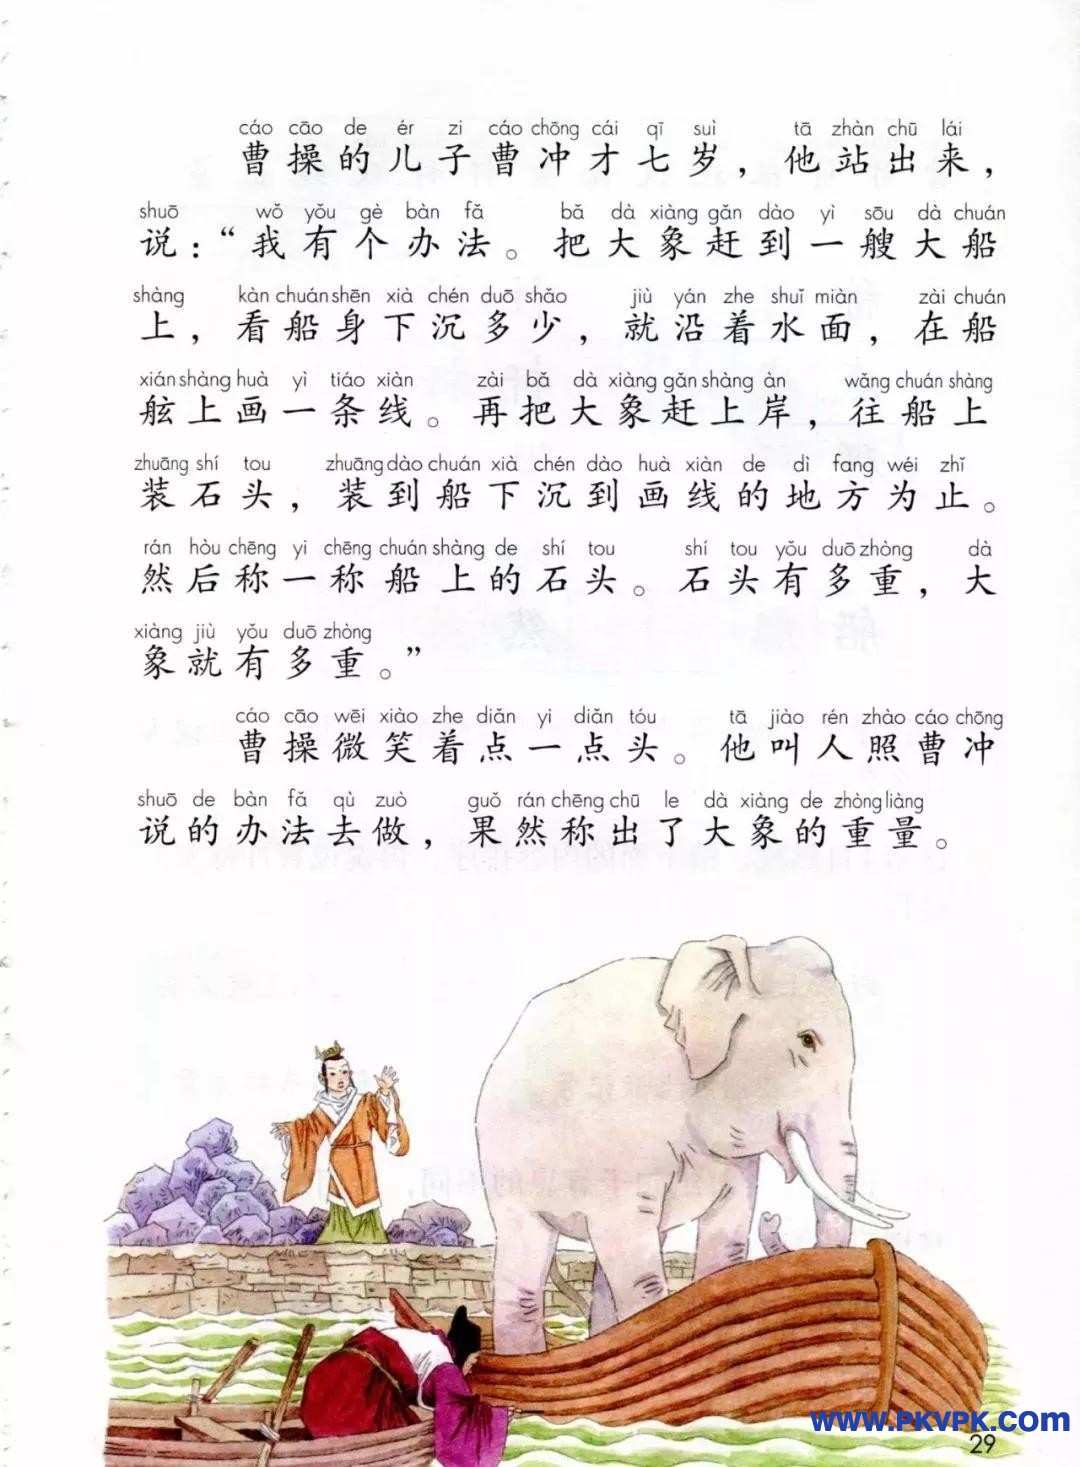 cáo cāo de ér zi cáo chōng cái qī suì tā zhàn chū lái
曹操的儿子曹冲才七岁，他站出来，
shuō wǒ yǒu gè bàn fǎ bǎ dà xiàng gǎn dào yì sōu dà chuán
说：“我有个办法。把大象赶到一艘大船
shàng kàn chuán shēn xià chén duō shǎo jiù yán zhe shuǐ miàn zài chuán
上，看船身下沉多少，就沿着水面，在船
xián shàng huà yì tiáo xiàn zài bǎ dà xiàng gǎn shàng àn wǎng chuán shàng
舷上画一条线。再把大象赶上岸，往船上
zhuāng shí tou zhuāng dào chuán xià chén dào huà xiàn de dì fang wéi zhǐ
装石头，装到船下沉到画线的地方为止。
rán hòu chēng yi chēng chuán shàng de shí tou shí tou yǒu duō zhòng dà
然后称一称船上的石头。石头有多重，大
xiàng jiù yǒu duō zhòng
象就有多重。”
cáo cāo wēi xiào zhe diǎn yi diǎn tóu tā jiào rén zhào cáo chōng
曹操微笑着点一点头。他叫人照曹冲
shuō de bàn fǎ qù zuò guǒ rán chēng chū le dà xiàng de zhòng liàng
说的办法去做，果然称出了大象的重量。
www.PKVPK.com
29